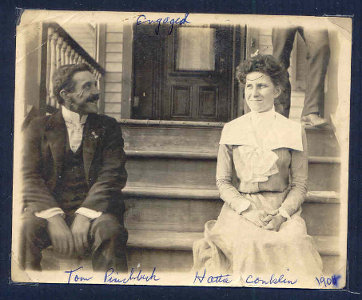 Engaged
Tom Pinchbeck Hatta Conklin